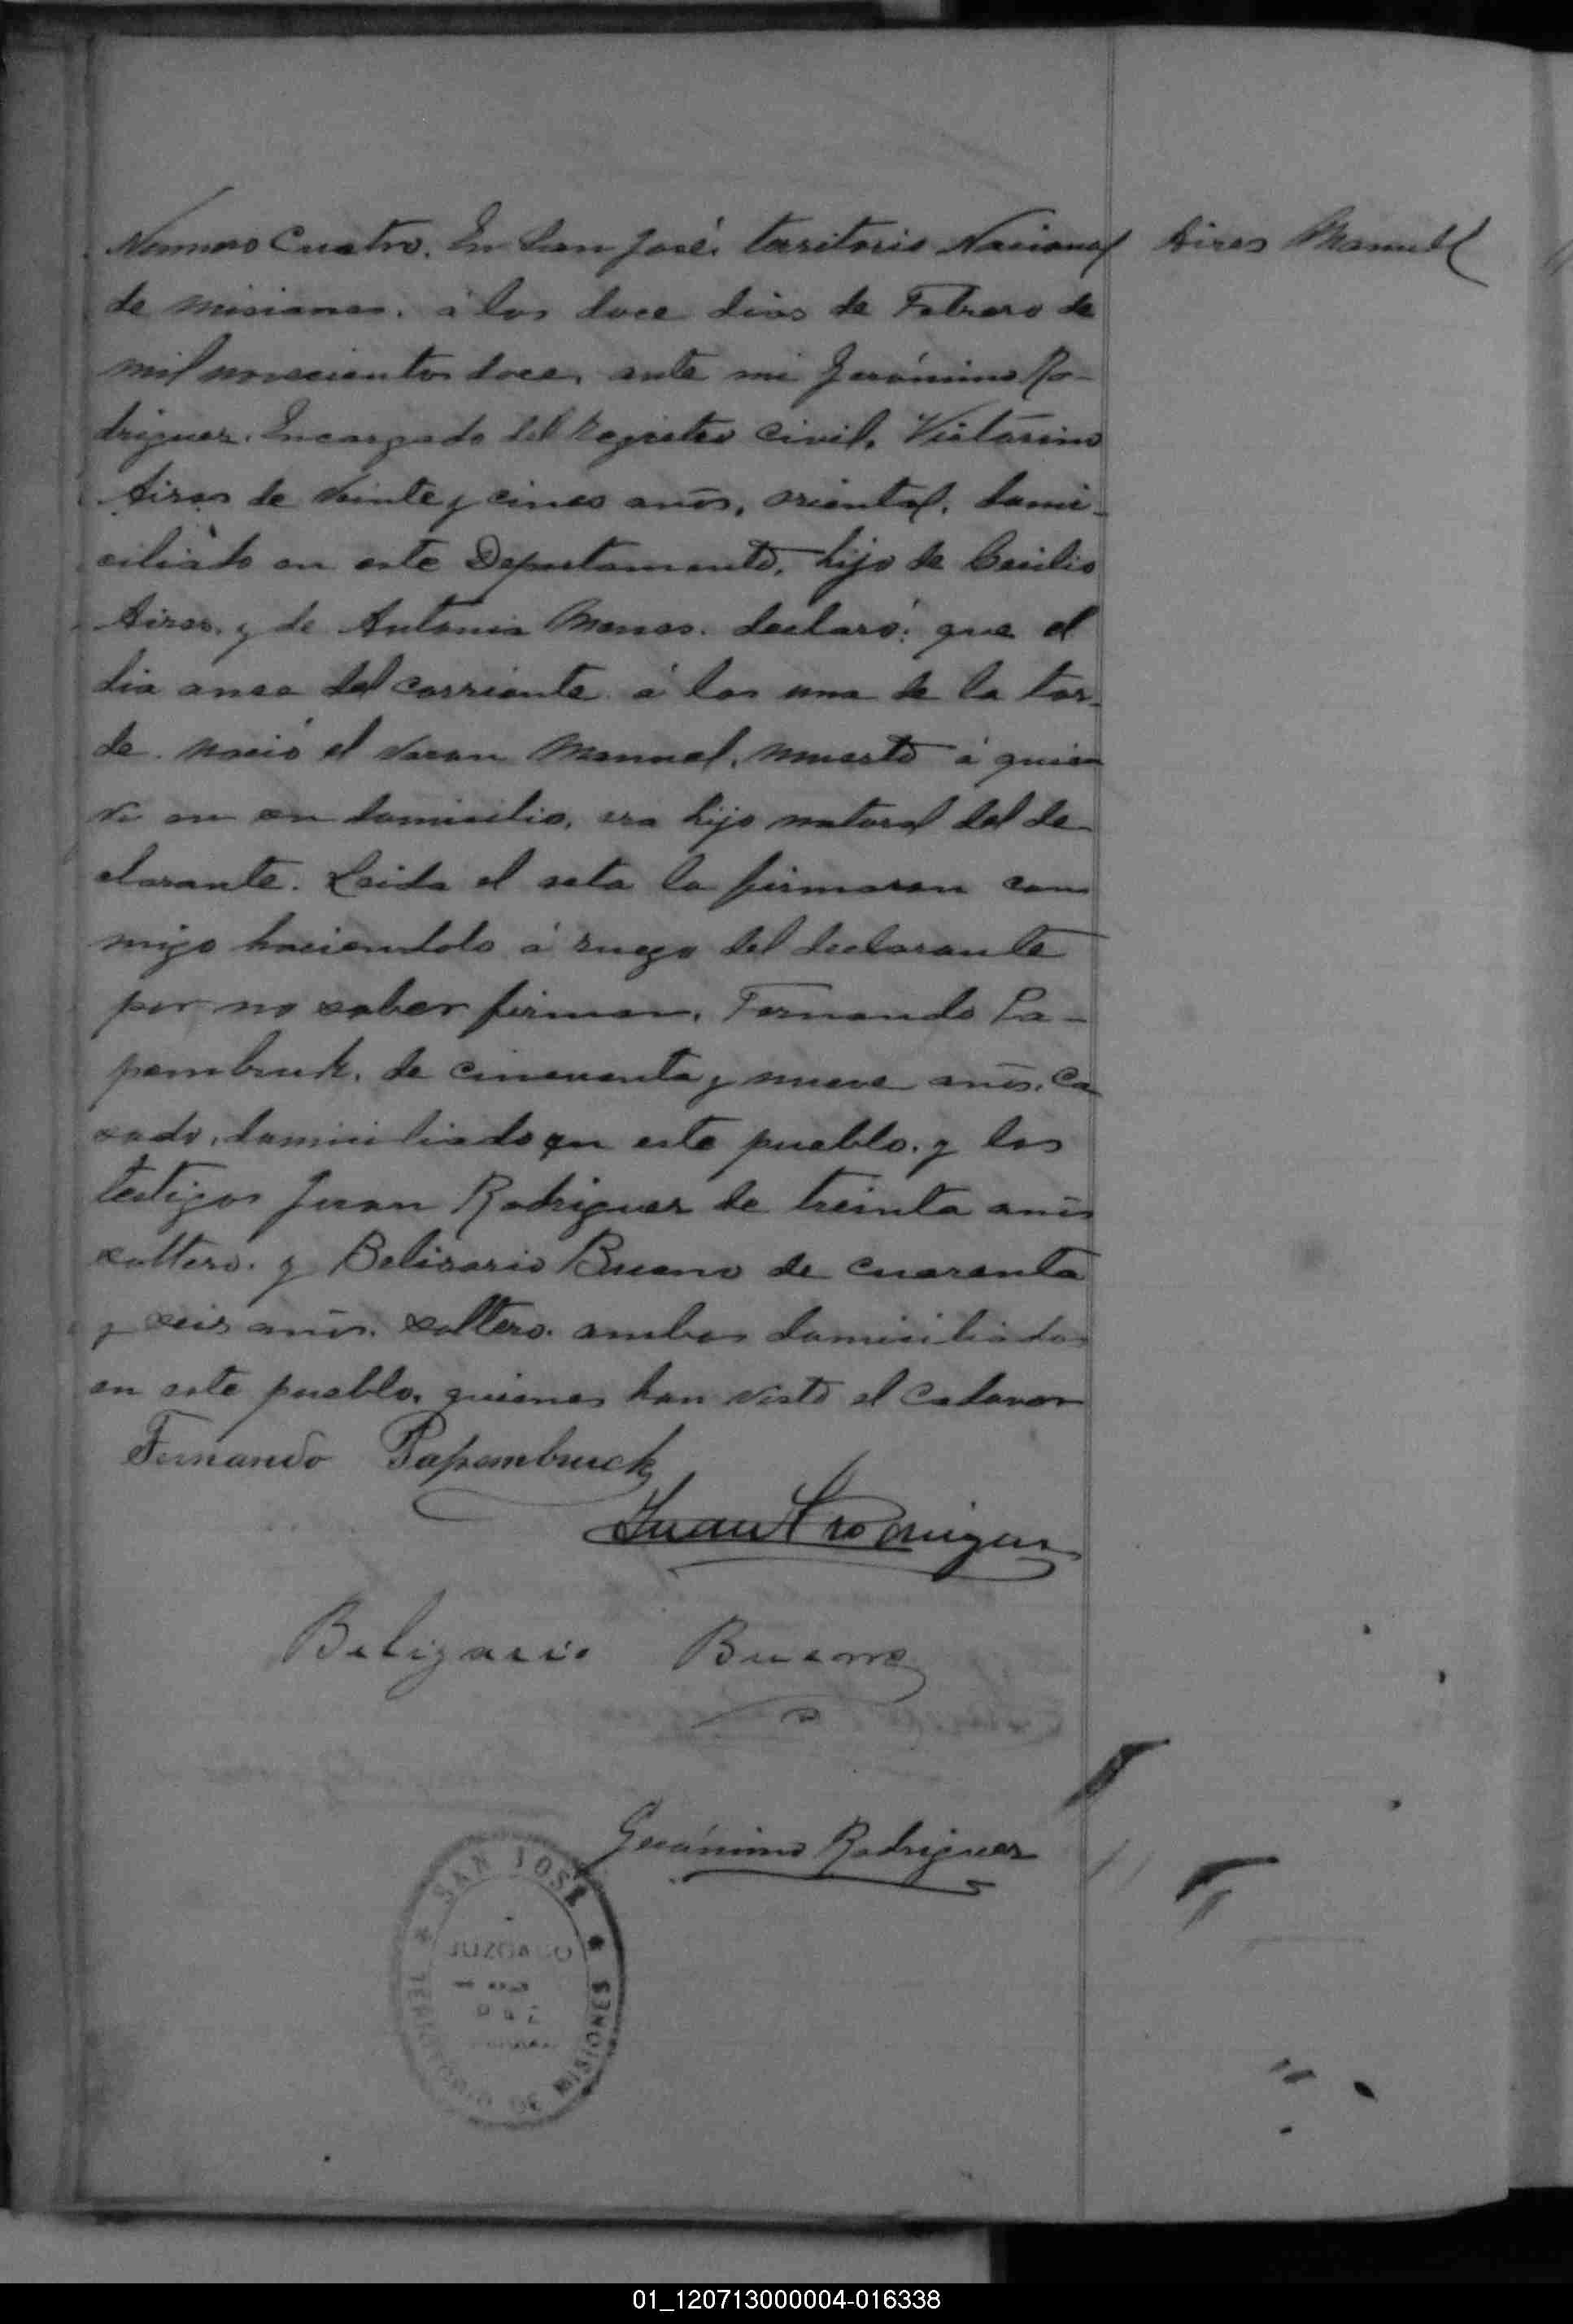 Numero Cuatro. En San José, territorio Nacional
Aires Manuel
de Misiones, á los doce dias de Febrero de
mil novecientos doce, ante mi Jerónimo Ro-
driguez, Encargado del Registro Civil, Victorino
Aires de veinte y cinco anos, oriental, domi-
ciliado en este Departamento, hijo de Cecilio
Aires, y de Antonia declaró: que el
dia once del corriente á las una de la tar-
de nació el varon Manuel, muerto á quien
vi en su domicilio, era hijo natural del de-
clarante. Leida el acta la firmaron con
migo haciendolo á ruego del declarante
por no saber firmar, Fernando Pa-
pembruck, de cincuenta y nueve anos, Ca
sado, domiciliado en este pueblo, y los
testigos Juan Rodriguez de treinta anos
soltero, y Belisario Bueno de cuarenta
y seis anos, soltero, ambos domiciliados
en este pueblo, quienes han visto el Cadaver
Fernando Papembruck
Juan Rodriguez
Beligario Bueno
Gerónimo Rodriguez
SAN JOSE
JUZGADO
DE PAZ
TERRITORIO DE MISIONES
01_120713000004-016338